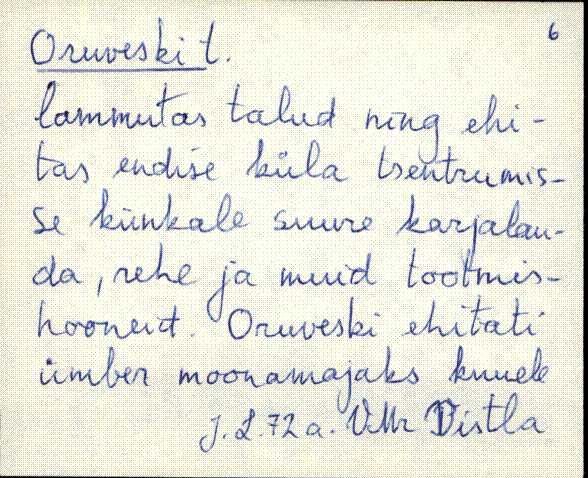 6
Oruveski t.
lammutas talud ning ehi-
tas endise küla tsentrumis-
se künkale suure karjalau-
da, rehe ja muid tootmis-
hooneid. Oruveski ehitati
ümber moonamajaks kuuele
J. L. 72 a. VMr Vistla